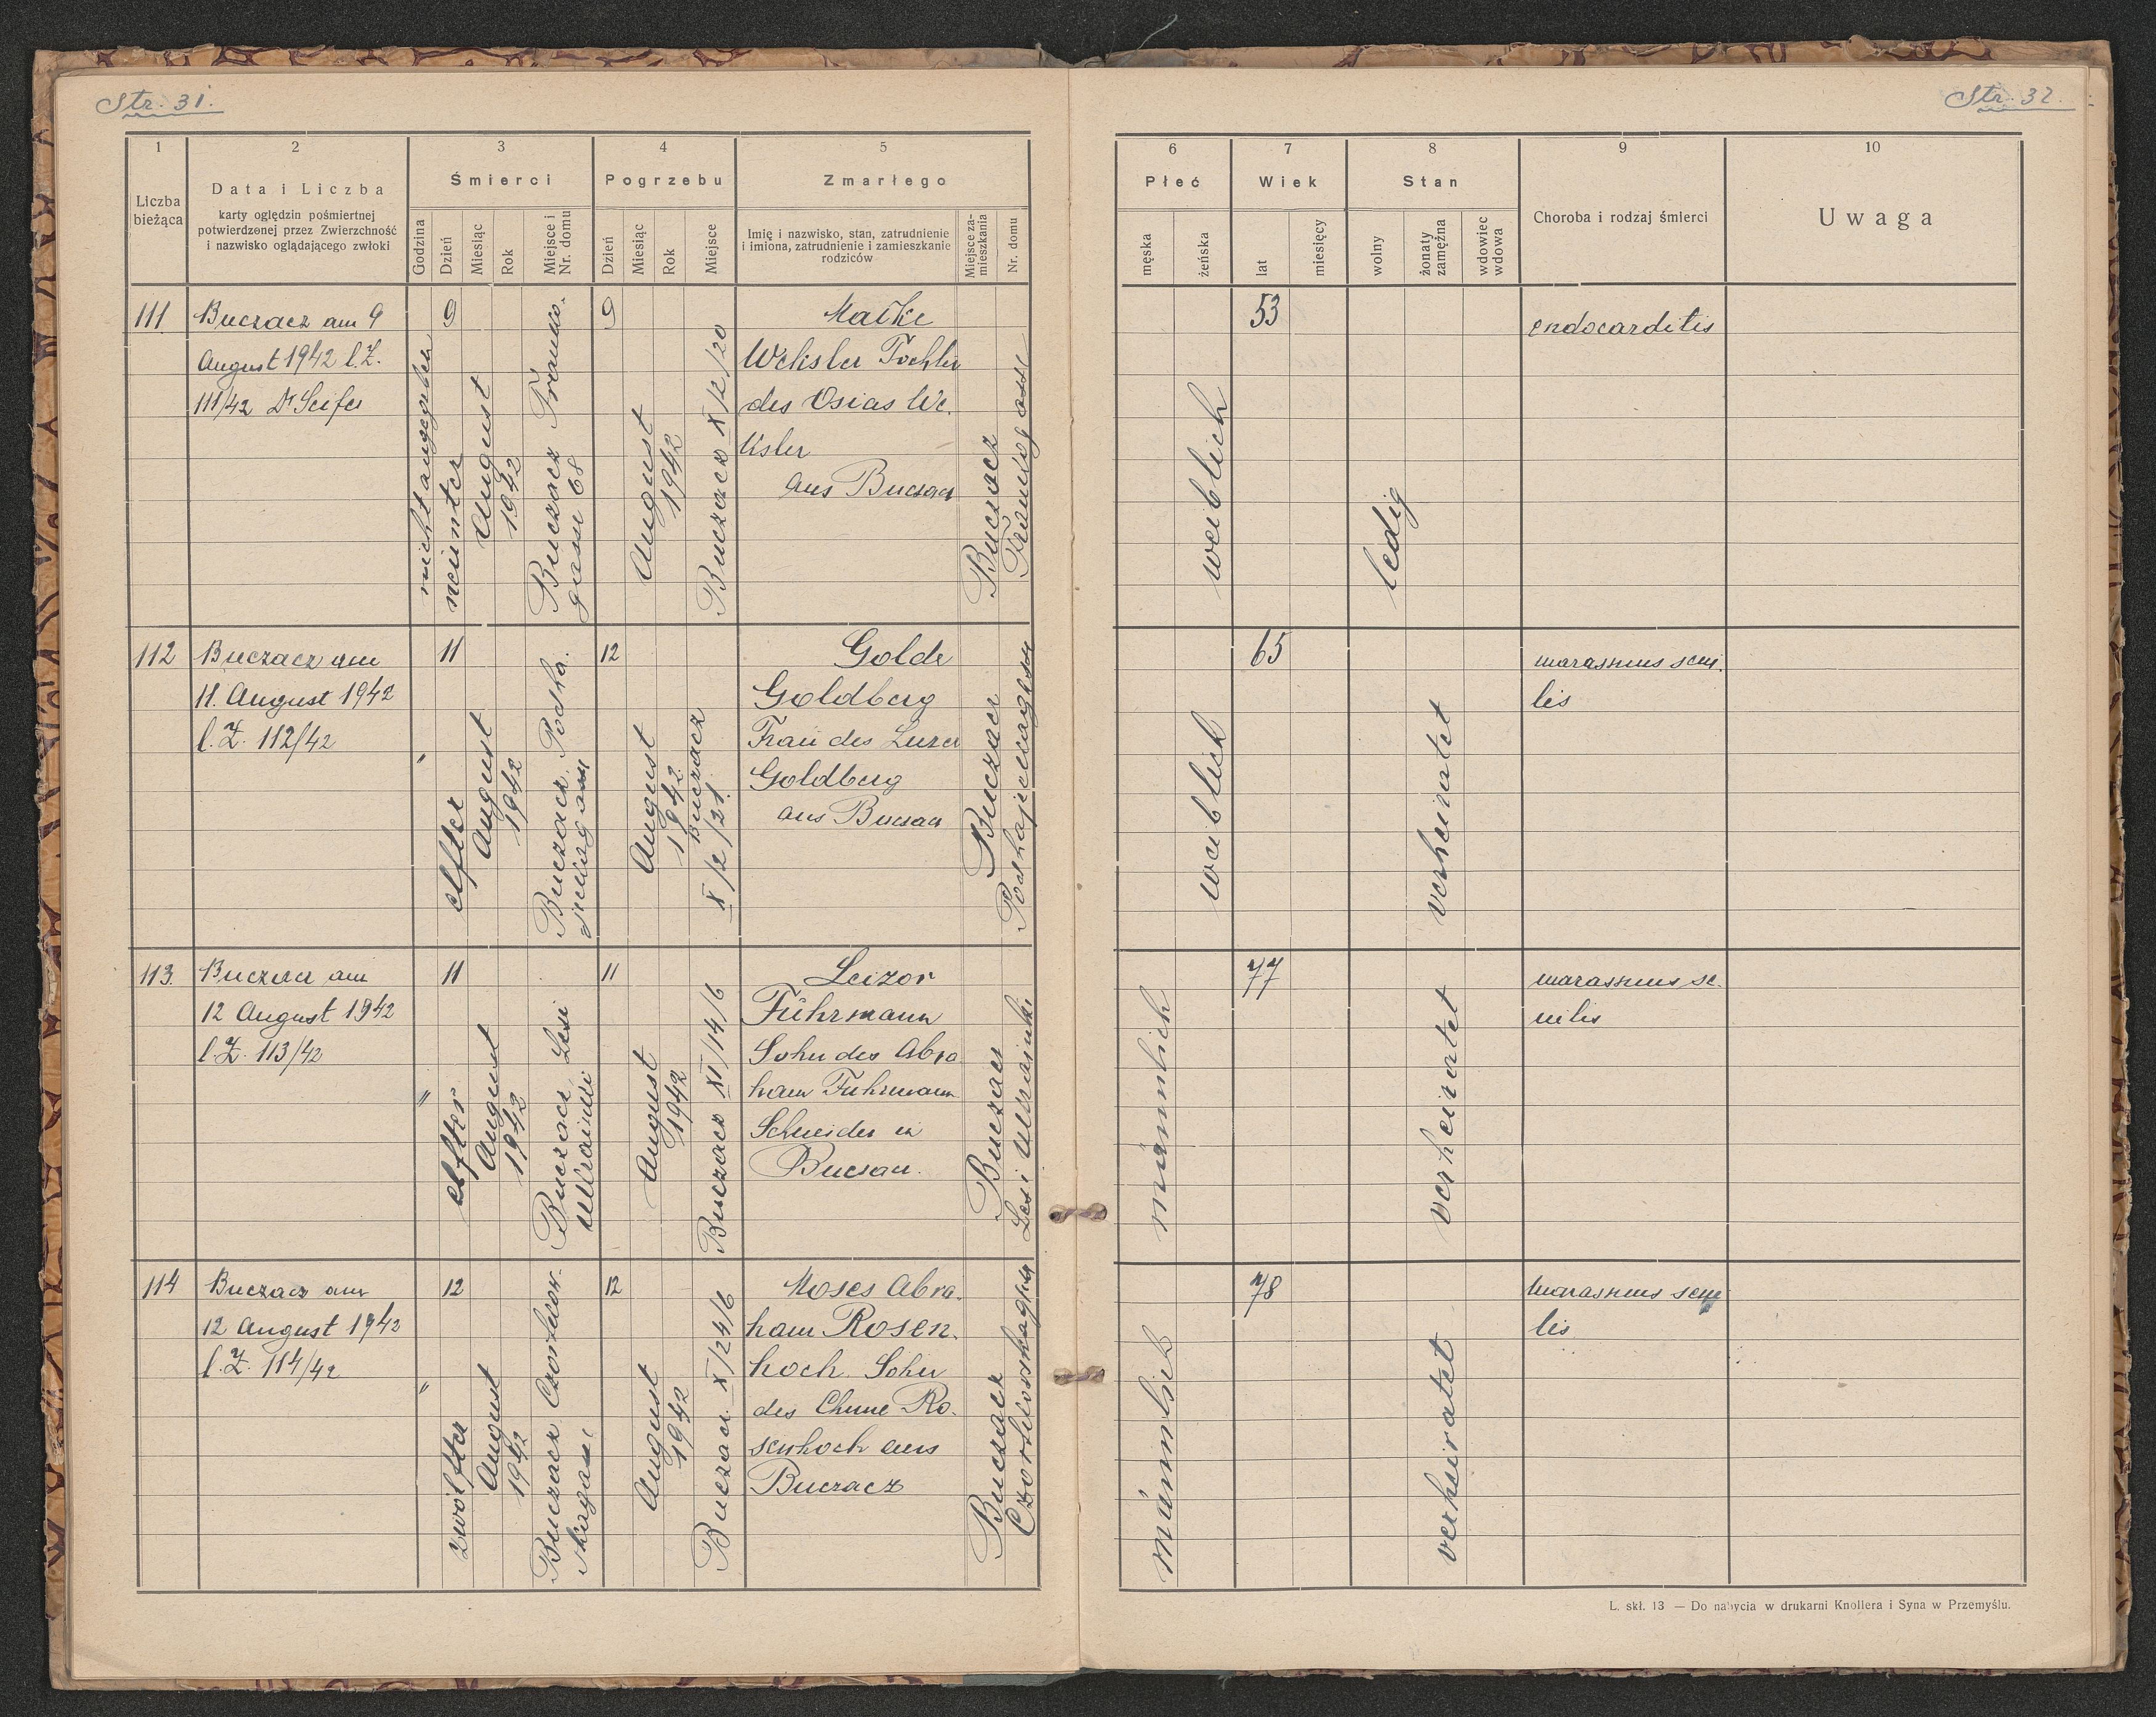 Str. 31.
Str. 32.
1
2
3
4
5
Liczba
bieżąca
Data i Liczba
karty oględzin pośmiertnej
potwierdzonej przez Zwierzchność
i nazwisko oglądającego zwłoki
Śmierci
Godzina
Dzień
Miesiąc
Rok
Miejsce i
Nr. domu
Pogrzebu
Dzień
Miesiąc
Rok
Miejsce
Zmarłego
Imię i nazwisko, stan, zatrudnienie
i imiona, zatrudnienie i zamieszkanie
rodziców
Miejsce za-
mieszkania
Nr. domu
6
7
8
9
10
Płeć
męska
żeńska
Wiek
lat
miesięcy
Stan
wolny
żonaty
zamężna
wdowiec
wdowa
Choroba i rodzaj śmierci
Uwaga
111
Buczacz am 9
August 1942 l.Z.
111/42 Dr Seifer
nicht angegeben
9
neunter
August
1942
Buczacz
gasse 68
9
August
1942
Buczacz X/2/20
Weksler Tochter
des Osias We.
ksler
aus Buczacz
Buczacz
weiblich
53
ledig
endocarditis
112
Buczacz am
11. August 1942
l.Z. 112/42
"
11
elfter
August
1942
Buczacz Podha.
jeckagasse
12
August
1942
Buczacz
X/2/21
Golde
Goldberg
Frau des Luzer
Goldberg
aus Buczacz
Buczacz
Podhajeckagasse
weiblich
65
verheiratet
marasmus seni.
lis
113.
Buczacz am
12 August 1942
l.Z. 113/42
"
11
elfter
August
1942
Buczacz Lesi
Ukrainki
11
August
1942
Buczacz XI/14/6
Leizor
Fuhrmann
Sohn des Abra
ham Fuhrmann
Schneider in
Buczacz.
Buczacz
Lesi Ukrainki
männlich
77
verheiratet
marasmus se.
nilis
114
Buczacz am
12 August 1942
l.Z. 114/42
"
12
zwölfter
August
1942
Buczacz Czortkow.
skagasse
12
August
1942
Buczacz X/24/6
Moses Abra.
ham Rosen.
hoch Sohn
des Chune Ro.
senhoch aus
Buczacz
Buczacz
Czortkowskagasse
männlich
78
verheiratet
marasmus seni
lis
L. skł. 13 — Do nabycia w drukarni Knollera i Syna w Przemyślu.